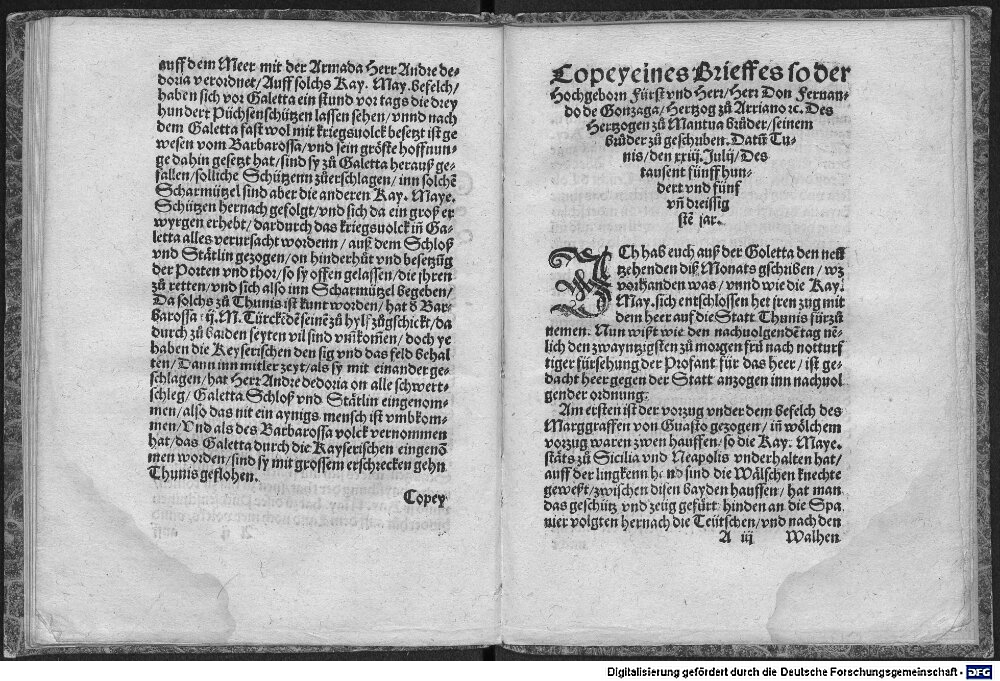 auff dem Meer mit der Armada Herr Andre de-
doria verordnet/Auff solchs Kay. May. befelch/
haben sich vor Galetta ein stund vor tags die drey
hundert Püchsenschützen lassen sehen/vnnd nach
dem Galetta fast wol mit kriegsuolck besetzt ist ge
wesen vom Barbarossa/vnd sein gröste hoffnun-
ge dahin gesetzt hat/sind sy zů Galetta herauß ge-
fallen/solliche Schützenn zůerschlagen/inn solchẽ
Scharmützel sind aber die anderen Kay. Maye.
Schützen hernach gefolgt/vnd sich da ein groß er
wyrgen erhebt/dardurch das kriegsuolck iñ Ga-
letta alles verursacht wordenn/auß dem Schloß
vnd Stätlin gezogen/on hinderhůt vnd besetzũg
der Porten vnd thor/so sy offen gelassen/die jhren
zů retten/vnd sich also inn Scharmützel begeben/
Da solchs zů Thunis ist kunt worden/hat d̕ Bar-
barossa ij. M. Türckẽ dẽ seinẽ zů hylf zůgschickt/da
durch zů baiden seyten vil sind vm̃komen/doch ye
haben die Keyserischen den sig vnd das feld behal
ten/Dann inn mitler zeyt/als sy mit einander ge-
schlagen/hat Herr Andre dedoria on alle schwert-
schleg/Galetta Schloß vnd Stätlin eingenom-
men/also das nit ein aynigs mensch ist vmbkom-
men/Vnd als des Barbarossa volck vernommen
hat/das Galetta durch die Kayserischen eingenõ
men worden/sind sy mit grossem erschrecken gehn
Thunis geflohen.
Copey
Copey eines Brieffes so der
Hochgeborn Fürst vnd Herr/Herr Don Fernan-
do de Gonzaga/Hertzog zů Arriano ꝛc. Des
Hertzogen zů Mantua brůder/seinem
brůder zů geschriben. Datũ Tu-
nis/den xxiij. Julij/Des
tausent fünffhun-
dert vnd fünf
vñ dreissig
stẽ jar.
ICh hab euch auß der Goletta den neü
tzehenden diß Monats gschriben/wz
vorhanden was/vnnd wie die Kay.
May. sich entschlossen het jren zug mit
dem heer auf die Statt Thunis fürzů
nemen. Nun wißt wie den nachuolgendẽ tag nẽ-
lich den zwayntzigsten zů morgen frů nach notturf
tiger fürsehung der Profant für das heer/ist ge-
dacht heer gegen der Statt anzogen inn nachuol
gender ordnung.
Am ersten ist der vorzug vnder dem befelch des
Marggraffen von Guasto gezogen/iñ wölchem
vorzug waren zwen hauffen/so die Kay. Maye.
stäts zů Sicilia vnd Neapolis vnderhalten hat/
auff der lingkenn hand sind die Wälschen knechte
geweßt/zwischen disen bayden hauffen/hat man
das geschütz vnd zeug gefürt/hinden an die Spa
nier volgten hernach die Teütschen/vnd nach den
A iij Walhen
Digitalisierung gefördert durch die Deutsche Forschungsgemeinschaft - DFG